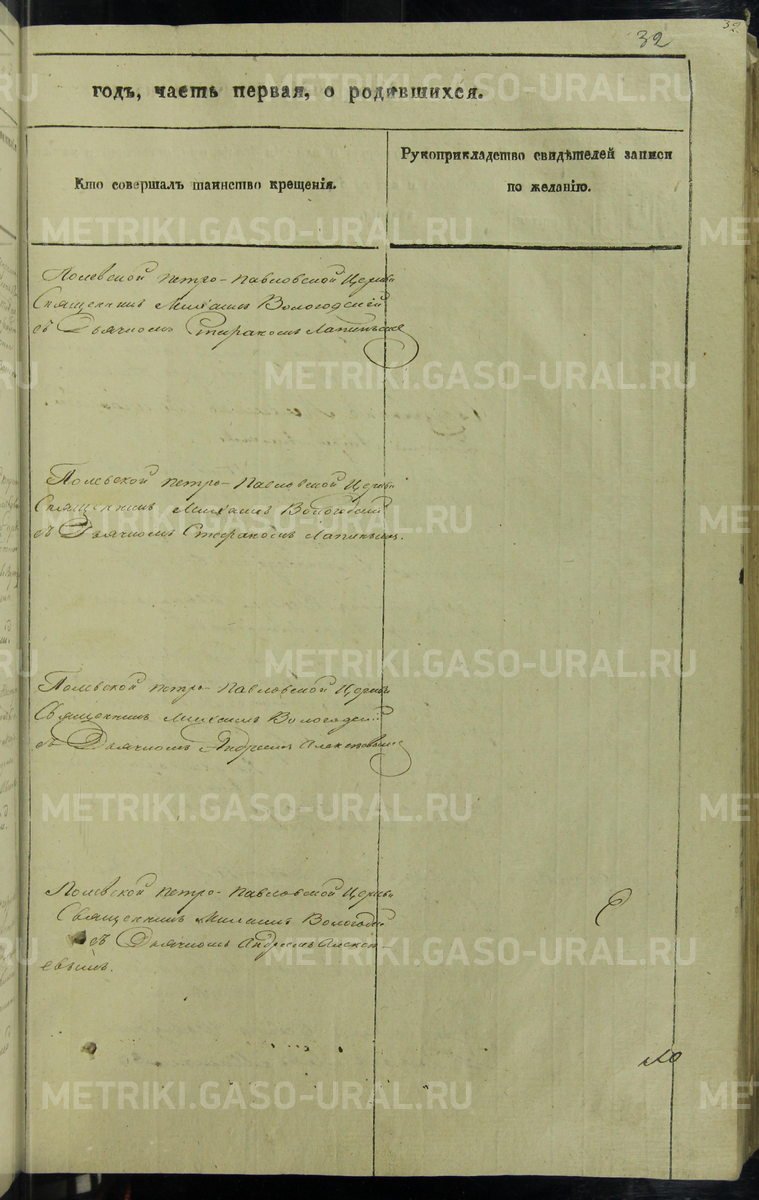 32
32
годъ, часть первая, о родившихся.
Кто совершалъ таинство крещенія.
Рукоприкладство свидѣтелей записи
по желанію.
Полевской Петро-Павловской Церкви
Священникъ Михаилъ Вологодской
съ Дьячкомъ Стефаномъ
Полевской Петро-Павловской Церкви
Священникъ Михаилъ
съ Дьячкомъ Стефаномъ
Полевской Петро-Павловской Церкви
Священникъ Михаилъ Вологодской
съ Дьячкомъ Андреемъ Алексѣевымъ
Полевской Петро-Павловской Церкви
Священникъ Михаилъ
съ Дьячкомъ Андреемъ Алексѣ-
евымъ.
METRIKI.GASO-URAL.RU